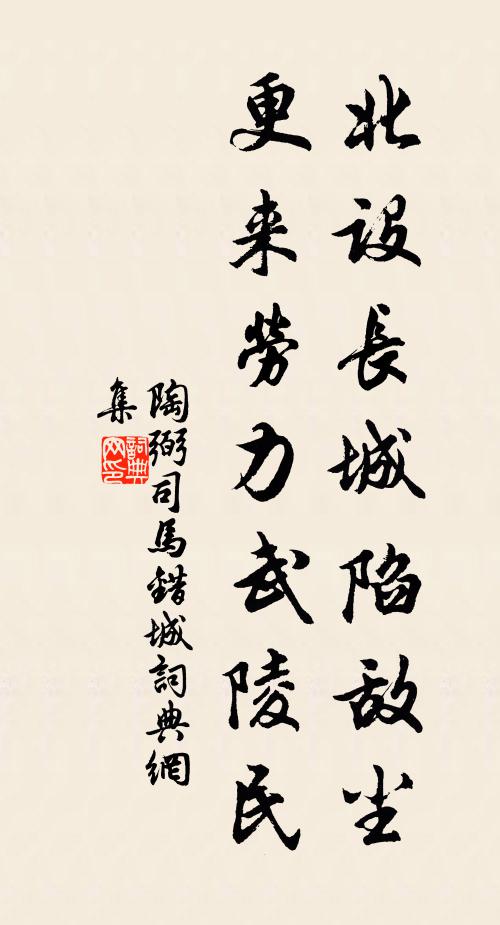 北設長城陷敌尘
更来勞力武陵民
陶弼司馬錯城詞典網
集
詞典网印